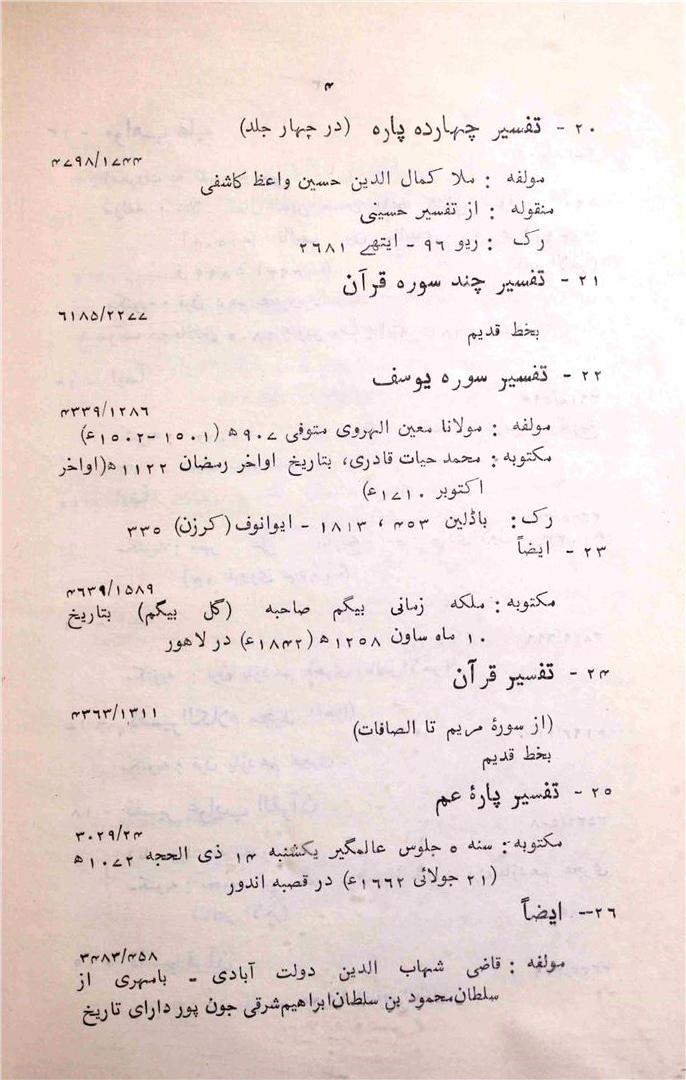 ۴
۲۰ - تفسیر چہاردہ پارہ (در چہار جلد)
۴۷۹۸/۱۷۴۴
مولفہ : ملا کمال الدین حسین واعظ کاشفی
منقولہ : از تفسیر حسینی
رک : ریو ۹۶ - ایتھے ۲۶۸۱
۲۱ - تفسیر چند سورہ قرآن
۶۱۸۵/۲۲۷۷
بخط قدیم
۲۲ - تفسیر سورہ یوسف
۴۳۳۹/۱۲۸۶
مولفہ : مولانا معین الہروی متوفی ۹۰۷ھ (۱۵۰۱-۱۵۰۲ء)
مکتوبہ : محمد حیات قادری، بتاریخ اواخر رمضان ۱۱۲۲ھ (اواخر
اکتوبر ۱۷۱۰ء)
رک : باڈلین ۴۵۳ ، ۱۸۱۳ - ایوانوف (کرزن) ۳۳۵
۲۳ - ایضاً
۴۶۳۹/۱۵۸۹
مکتوبہ : ملکہ زمانی بیگم صاحبہ (گل بیگم) بتاریخ
۱۰ ماہ ساون ۱۲۵۸ھ (۱۸۴۲ء) در لاہور
۲۴ - تفسیر قرآن
۴۳۶۳/۱۳۱۱
(از سورۂ مریم تا الصافات)
بخط قدیم
۲۵ - تفسیر پارۂ عم
۳۰۲۹/۲۴
مکتوبہ : سنہ ۵ جلوس عالمگیر یکشنبہ ۱۴ ذی الحجہ ۱۰۷۲ھ
(۲۱ جولائی ۱۶۶۲ء) در قصبہ اندور
۲۶-- ایضاً
۳۴۸۳/۴۵۸
مولفہ : قاضی شہاب الدین دولت آبادی - بامہری از
سلطان محمود بن سلطان ابراہیم شرقی جون پور دارای تاریخ